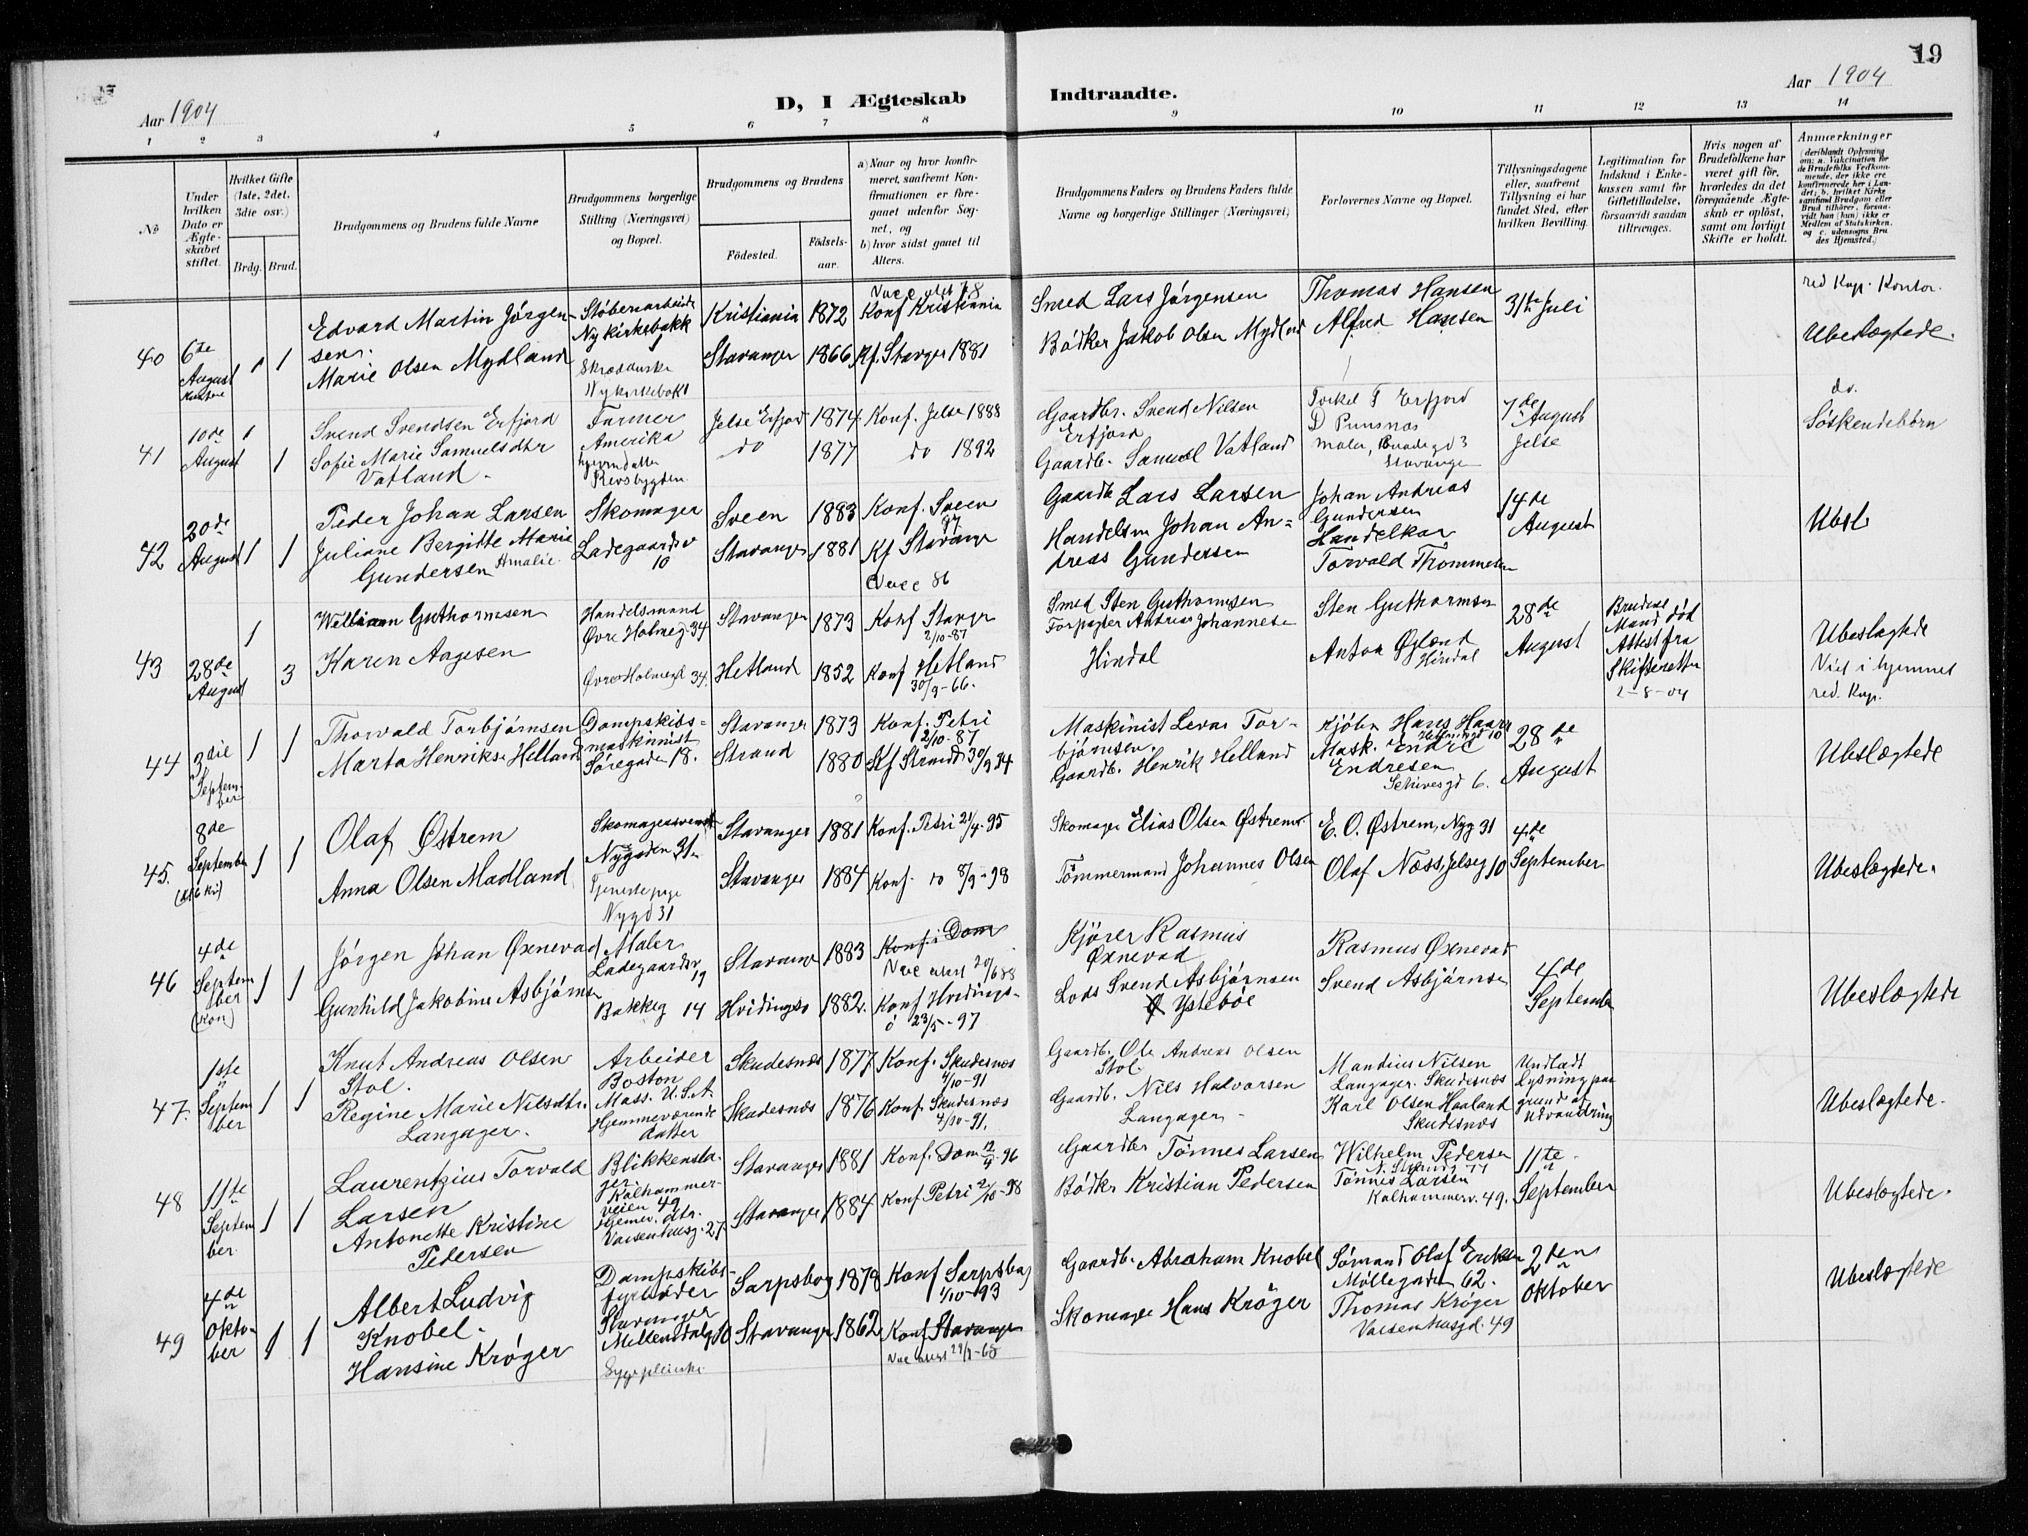 19
Aar 1904
D, I Ægteskab Indtraadte.
Aar 1904
1 2 3 4 5 6 7 8 9 10 11 12 13 14
No
Under hvilken Dato er Ægteskabet stiftet.
Hvilket Gifte (1ste, 2det, 3die osv.)
Brdg. Brud.
Brudgommens og Brudens fulde Navne
Brudgommens borgerlige Stilling (Næringsvei) og Bopæl.
Brudgommens og Brudens
Födested.
Födsels-aar.
a) Naar og hvor konfirmeret, saafremt Konfirmationen er foregaaet udenfor Sognet, og
b) hvor sidst gaaet til Alters.
Brudgommens Faders og Brudens Faders fulde Navne og borgerlige Stillinger (Næringsvei)
Forlovernes Navne og Bopæl.
Tillysningsdagene eller, saafremt Tillysning ei har fundet Sted, efter hvilken Bevilling.
Legitimation for Indskud i Enkekassen samt for Giftetilladelse, forsaavidt saadan tiltrænges.
Hvis nogen af Brudefolkene har været gift för, hvorledes da det foregaaende Ægteskab er oplöst, samt om lovligt Skifte er holdt.
Anmærkninger
40 6te August 1 1
Edvard Martin Jørgensen.
Marie Olsen Mydland
Støberiarbeide Nykirkebakk 1
Nykirkebak 1
Kristiania 1872 Konf Kristiania
Stavanger 1866 Kf. Stavger 1881
Smed Lars Jørgensen
Bödker Jakob Olsen Mydland
Thomas Hansen
Alfred Hansen
31te Juli
Ubeslægtede.
41 10de August 1 1
Svend Svendsen Erfjord
Sofie Marie Samuelsdtr Vatland.
Farmer Amerika
Jelse Erfjord 1874 Konf. Jelse 1888
do 1877 do 1892
Gaardbr. Svend Nilsen Erfjord
Gaardb. Samuel Vatland
Torkel T Erfjord
Stavanger
7de August Jelse
do.
Søskendebørn
42 20de August 1 1
Peder Johan Larsen
Juliane Bergitte Marie Amalie Gundersen
Skomager
Ladegaardsv 10
Sveen 1883 Konf. Sveen 97
Stavanger 1881 Kf Stavange
Gaardb Lars Larsen
Handelsm Johan Andreas Gundersen
Johan Andreas Gundersen
Handelkar
Torvald Thommesen
14de August
Ubsl
43 28de August 1 3
William Guthormsen
Karen Aagesen
Handelsmand Øvre Holmeg. 34
Øvre Holmegd 34.
Stavanger 1873 Konf Stavger 2/10-87
Hetland 1852 Konf Hetland 30/9-66.
Smed Sten Guthormsen
Forpagter Andreas Johannesen Hindal
Sten Guthormsen
Anton Øglend Hindal
28de August
Brudens Mand död Attest fra Skifteretten
2-8-04
Ubeslægtede
Viet i hjemmet
44 3die September 1 1
Thorvald Torbjörnsen
Marta Henriksn Helland
Dampskibsmaskinnist Søregaden 18.
Stavanger 1873 Konf. Petri 2/10-87
Strand 1880 Kf Strand
Maskinist Levar Torbjörnsen.
Gaardb. Henrik Helland
Kjöbm Hans Haar
Mask. Endre Endresen
28de August
Ubeslægtede
45. 8de September 1 1
Olaf Østrem
Anna Olsen Madland
Skomagersvend Nygaden 31.
Tjenestepige Nygd 31
Stavanger 1881 Konf. Petri 21/4-95
Stavanger 1884 Konf. do 8/9-98
Skomager Elias Olsen Østrem.
Tömmermand Johannes Olsen
E. O. Østrem, Nyg 31
Olaf Næss, Jelseg 10
4de September
Ubeslægtede.
46 4de September 1 1
Jörgen Johan Øxnevad
Gunhild Jakobine Asbjörnsen
Maler Ladegaardsv 19
Bakkeg 14
Stavange 1883 Konf. i Dom
Hvidingsø 1882. Konf Hvidingsö 23/5-97
Kjörer Rasmus Øxnevad
Lods Svend Asbjörnsen Ystebøe
Rasmus Øxnevad
Svend Asbjörnsen
4de September
Ubeslægtede
47. 1ste September 1 1
Knut Andreas Olsen Stol.
Regine Marie Nilsdtr. Langager.
Arbeider Boston Mass. U.S.A.
Hjemmeværende datter
Skudesnæs 1877 Konf. Skudesnæs 4/10-91
Skudesnæs 1876 Konf. Skudesnæs 4/10-91.
Gaardb. Ole Andreas Olsen Stol.
Gaardb. Nils Halvorsen Langager
Mandius Nilsen Langager. Skudesnæs
Karl Olsen Haaland Skudesnæs
Undladt Lysning paa grund af Udvandring
Ubeslægtede.
48 11te September. 1 1
Laurentzius Torvald Larsen
Antonette Kristine Pedersen
Blikkenslager Kalhammerveien 49
Hjemv. dtr. Vaisenhusg. 27
Stavanger 1881 Konf. Dom 12/4-96
Stavanger 1884 Konf. Petri 2/10-98
Gaardbr Tønnes Larsen
Bödker Kristian Pedersen
Wilhelm Pedersen
Tönnes Larsen Kalhammerv. 49.
11te September
Ubeslægtede.
49 4de Oktober 1 1
Albert Ludvig Knobel.
Hansine Krøger
Dampskibsfyrböder Stavanger
Sygepleierske
Sarpsborg 1878 Konf Sarpsborg 1/10-93
Stavanger 1862 Konf Stavange
Gaardb. Abraham Knobel
Skomager Hans Krøger
Sømand Olaf Eriksen Møllegaden 62.
Thomas Krøger Vaisenhusgd. 49
2den Oktober
Ubeslægtede